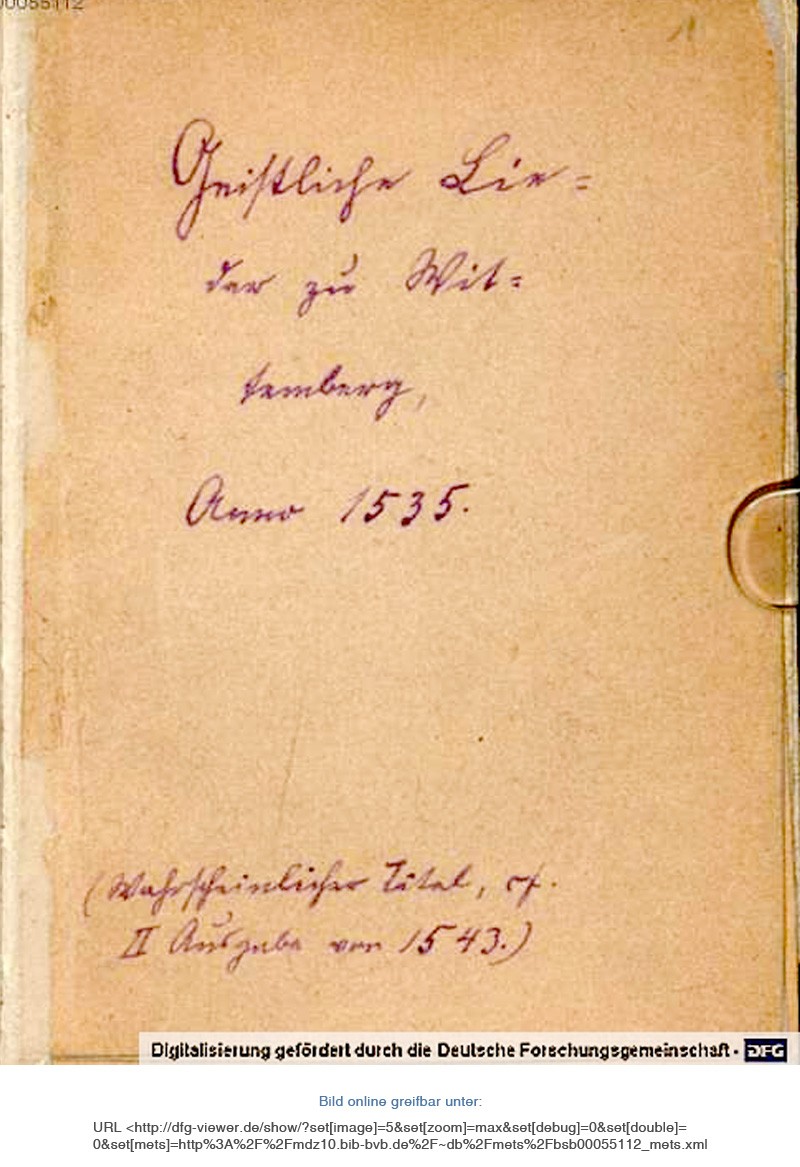 00055112
Geistliche Lie=
der zu Wit=
temberg,
Anno 1535.
(Wahrscheinlicher Titel, cf.
II Ausgabe von 1543.)
Digitalisierung gefördert durch die Deutsche Forschungsgemeinschaft - DFG
Bild online greifbar unter:
URL <http://dfg-viewer.de/show/?set[image]=5&set[zoom]=max&set[debug]=0&set[double]=
0&set[mets]=http%3A%2F%2Fmdz10.bib-bvb.de%2F~db%2Fmets%2Fbsb00055112_mets.xml